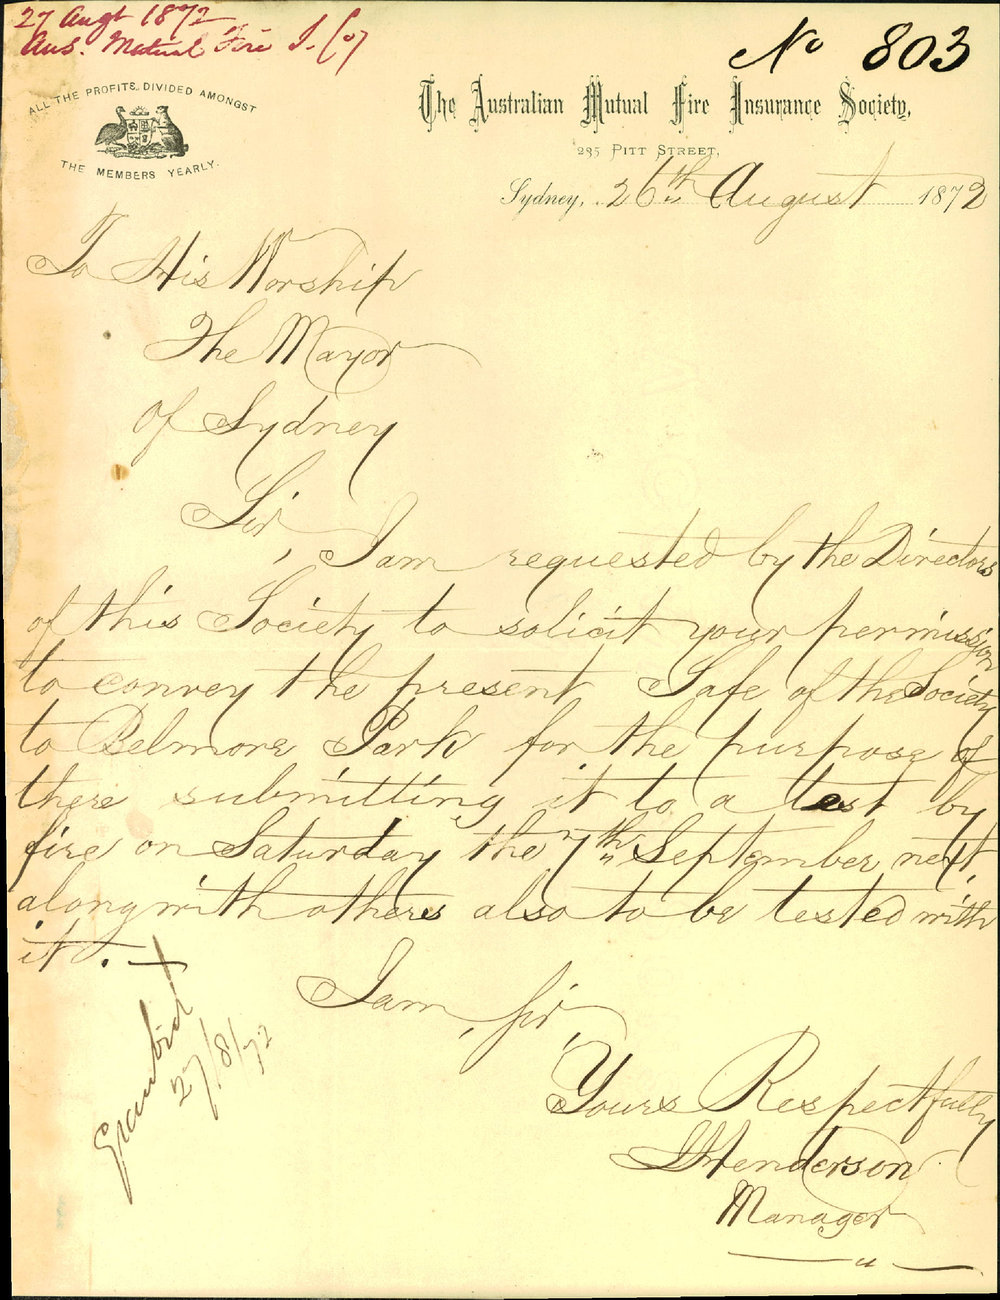 27 Augt 1872
Aus. Mutual Fire I. Coy
No 803
ALL THE PROFITS DIVIDED AMONGST
THE MEMBERS YEARLY.
The Australian Mutual Fire Insurance Society,
235 PITT STREET,
Sydney, 26th August 1872
To His Worship
The Mayor
of Sydney
Sir,
I am requested by the Directors
of this Society to solicit your permission
to convey the present Safe of the Society
to Belmore Park for the purpose of
there submitting it to a test by
fire on Saturday the 7th September next,
along with others also to be tested with
it.
Granted
27/8/72
I am, Sir,
Yours Respectfully
Henderson
Manager